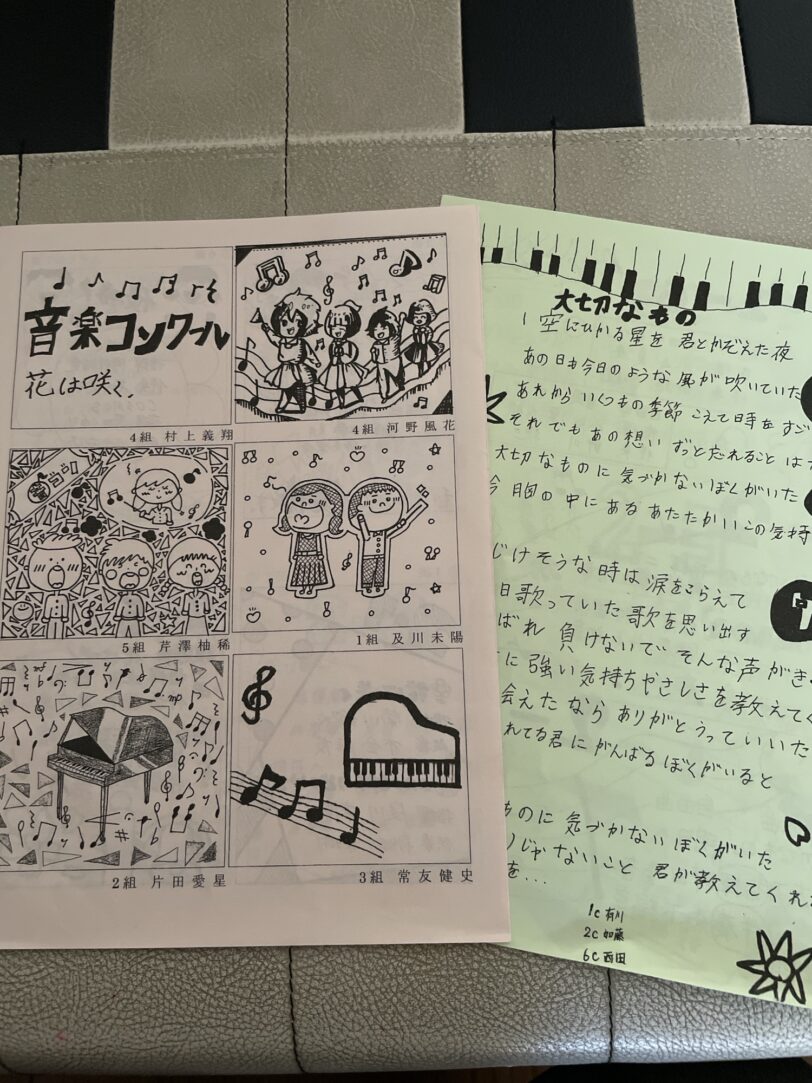 音楽コンクール
花は咲く
4組 村上義翔
4組 河野風花
5組 芹澤柚稀
1組 及川未陽
2組 片田愛星
3組 常友健史
大切なもの
1 空にひかる星を 君とかぞえた夜
あの日も今日のような風が吹いていた
あれから いくつもの季節 こえて時をすご
それでもあの想い ずっと忘れることは
大切なものに 気づかないぼくがいた
今 胸の中にある あたたかい この気持
じけそうな時は 涙をこらえて
日歌っていた 歌を思い出す
ばれ 負けないで そんな声が
に 強い気持ちやさしさを教えてく
会えたなら ありがとうっていいた
れてる君に がんばるぼくがいると
ものに 気づかない ぼくがいた
りじゃないこと 君が教えてくれ
を…
1C 有川
2C 加藤
6C 西田